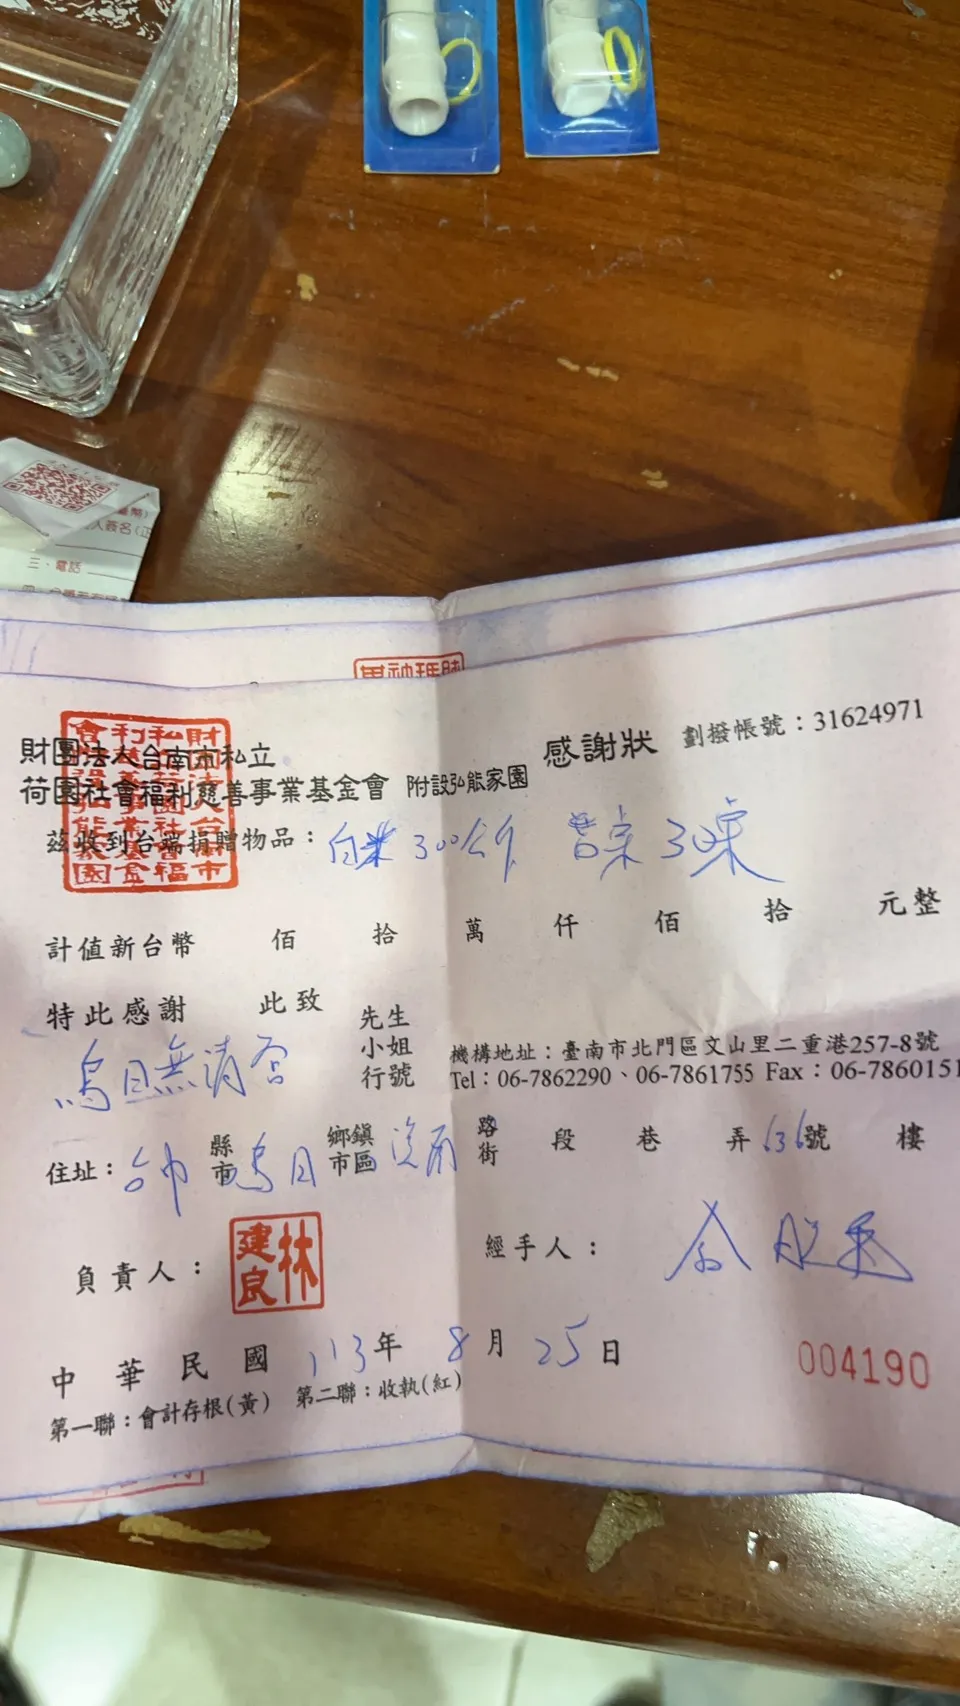 人簽名(正
三、電話
財團法人台南市私立
荷園社會福利慈善事業基金會 附設弘能家園 感謝狀 劃撥帳號：31624971
茲收到台端捐贈物品： 白米 300公斤
計值新台幣 佰 拾 萬 仟 佰 拾 元整
特此感謝 此致 先生
小姐
行號
烏日無清宮
機構地址：臺南市北門區文山里二重港257-8號
Tel：06-7862290、06-7861755 Fax：06-7860151
住址： 台中 縣市 烏日 鄉鎮市區 溪南 路街 段 巷 弄 636號 樓
負責人： 林建良 經手人：
中華民國 113年 8月 25日
004190
第一聯：會計存根(黃) 第二聯：收執(紅)